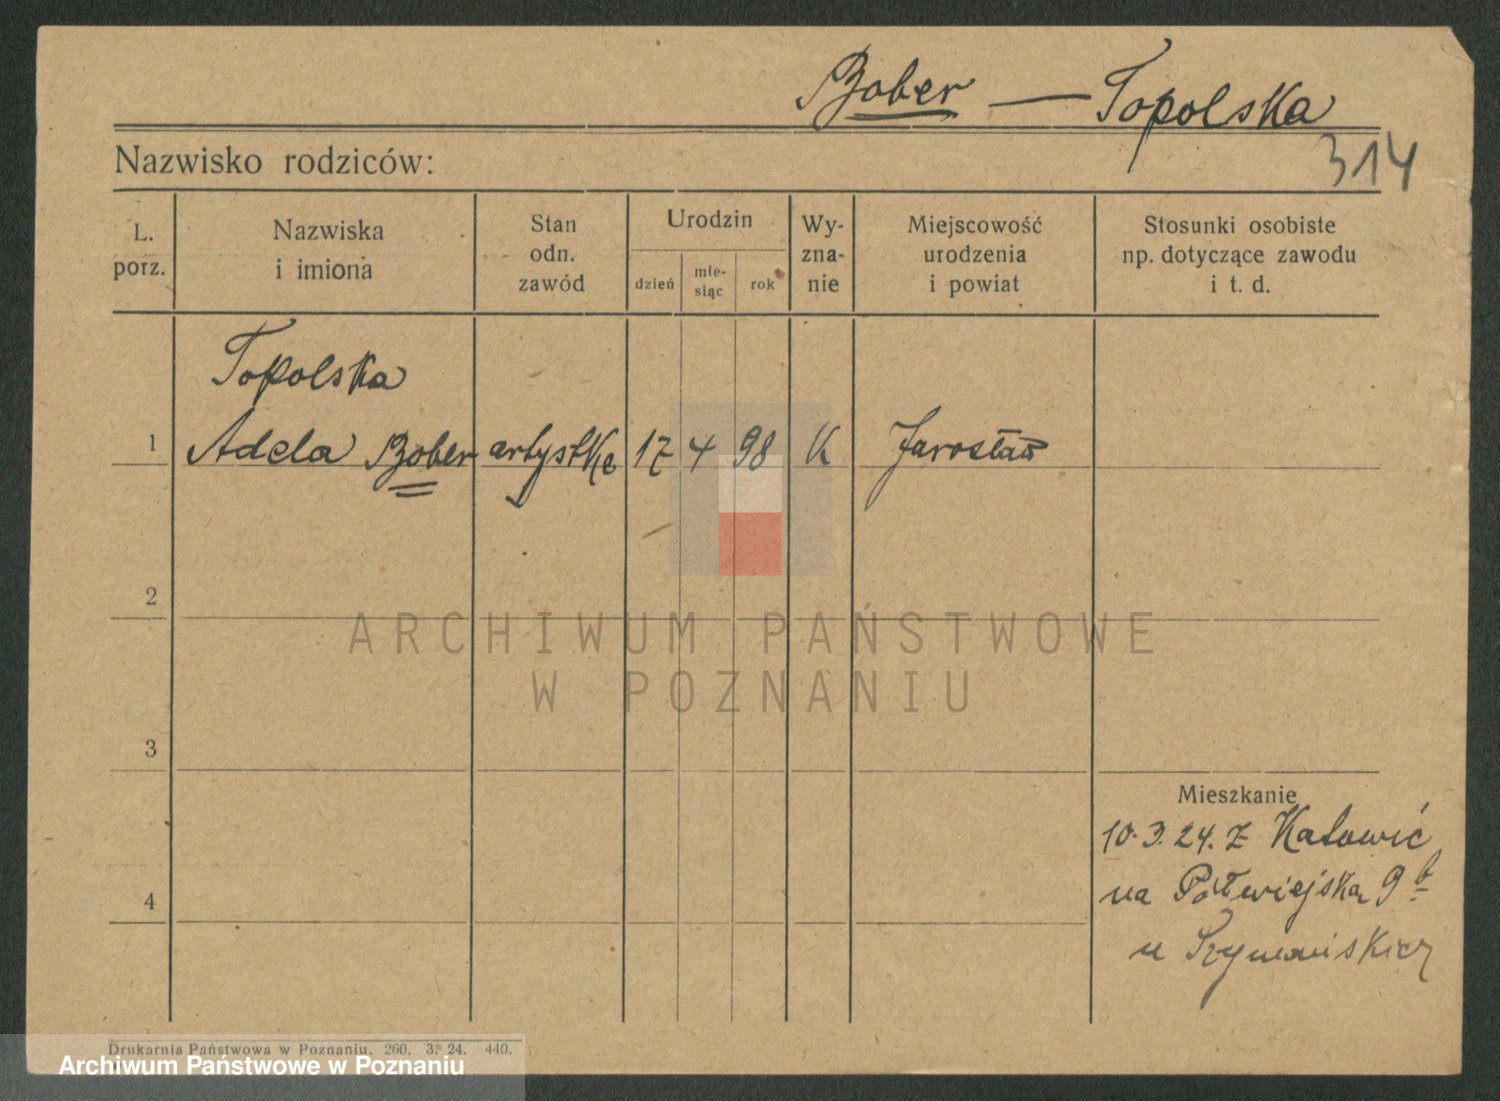 Bober — Topolska
Nazwisko rodziców:
314
L.
porz.
Nazwiska
i imiona
Stan
odn.
zawód
Urodzin
dzień
mie-
siąc
rok
Wy-
zna-
nie
Miejscowość
urodzenia
i powiat
Stosunki osobiste
np. dotyczące zawodu
i t. d.
Topolska
1 Adela Bober artystka 17 4 98 K Jarosław
2
ARCHIWUM PAŃSTWOWE
W POZNANIU
3
Mieszkanie
10.3.24. z Katowic
4
na Półwiejska 9
u
Drukarnia Państwowa w Poznaniu. 260. 3. 24. 440.
Archiwum Państwowe w Poznaniu